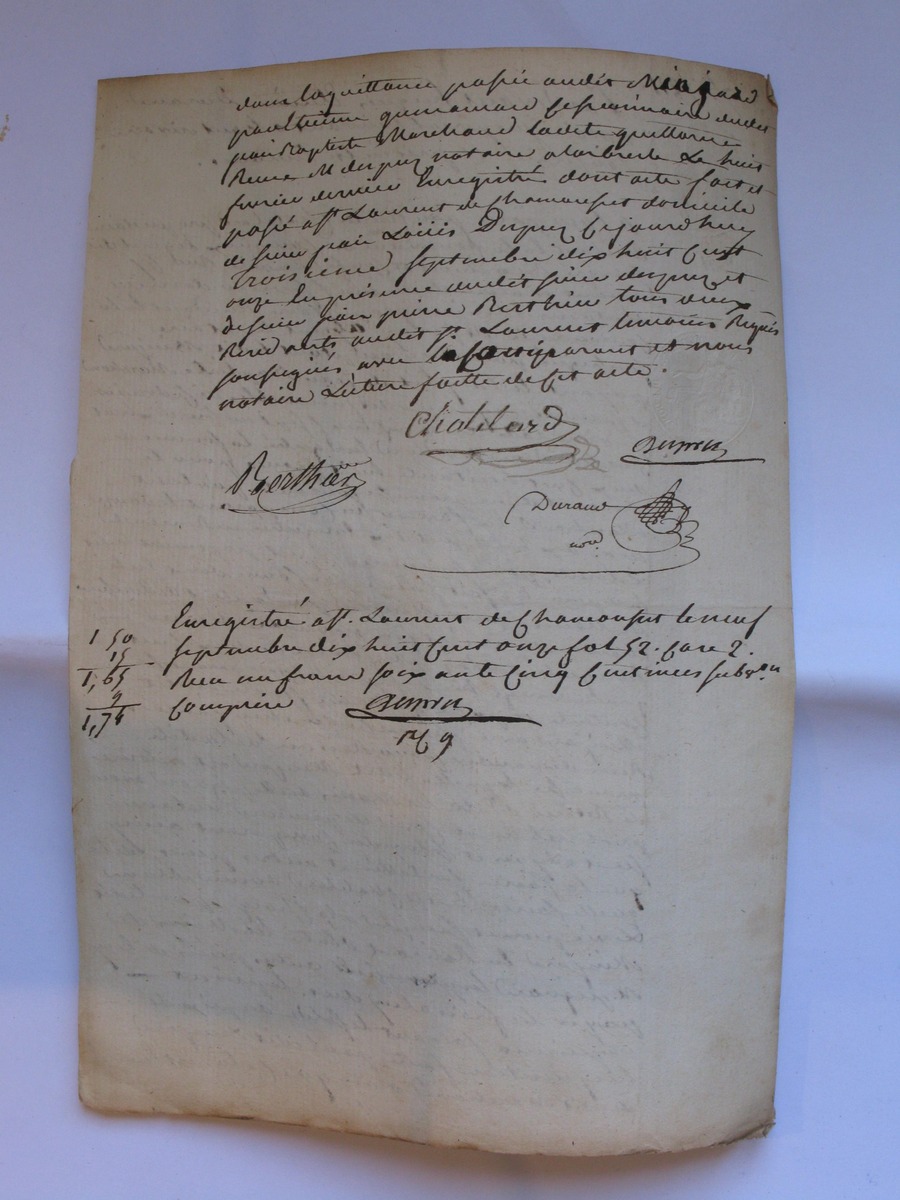 dans la quittance passée audit
par Etienne cessionnaire dudit
jean Baptiste Marchand ladite quittance
Reçue Me Dupuy notaire a larbresle Le huit
fevrier dernier Enregistré dont acte fait et
passé a St Laurent de Chamousset domicile
de sieur jean Loüis Dupuy Cejourdhuy
troisieme septembre dix huit Cent
onze En présence dudit sieur dupuy et
de sieur jean pierre Berthier tous deux
Residents audit St Laurent temoins Requis
soussignés avec le Comparant et nous
notaire Lecture faitte de Cet acte.
Chatelard
Dupuy
Berthier
Durand
nore
Enregistré a St. Laurent de Chamousset le neuf
septembre dix huit Cent onze fol 52. Case 2.
Reçu un franc soixante Cinq Centimes subvon
Comprise Dupuy
1 50
15
1,65
9
1,74